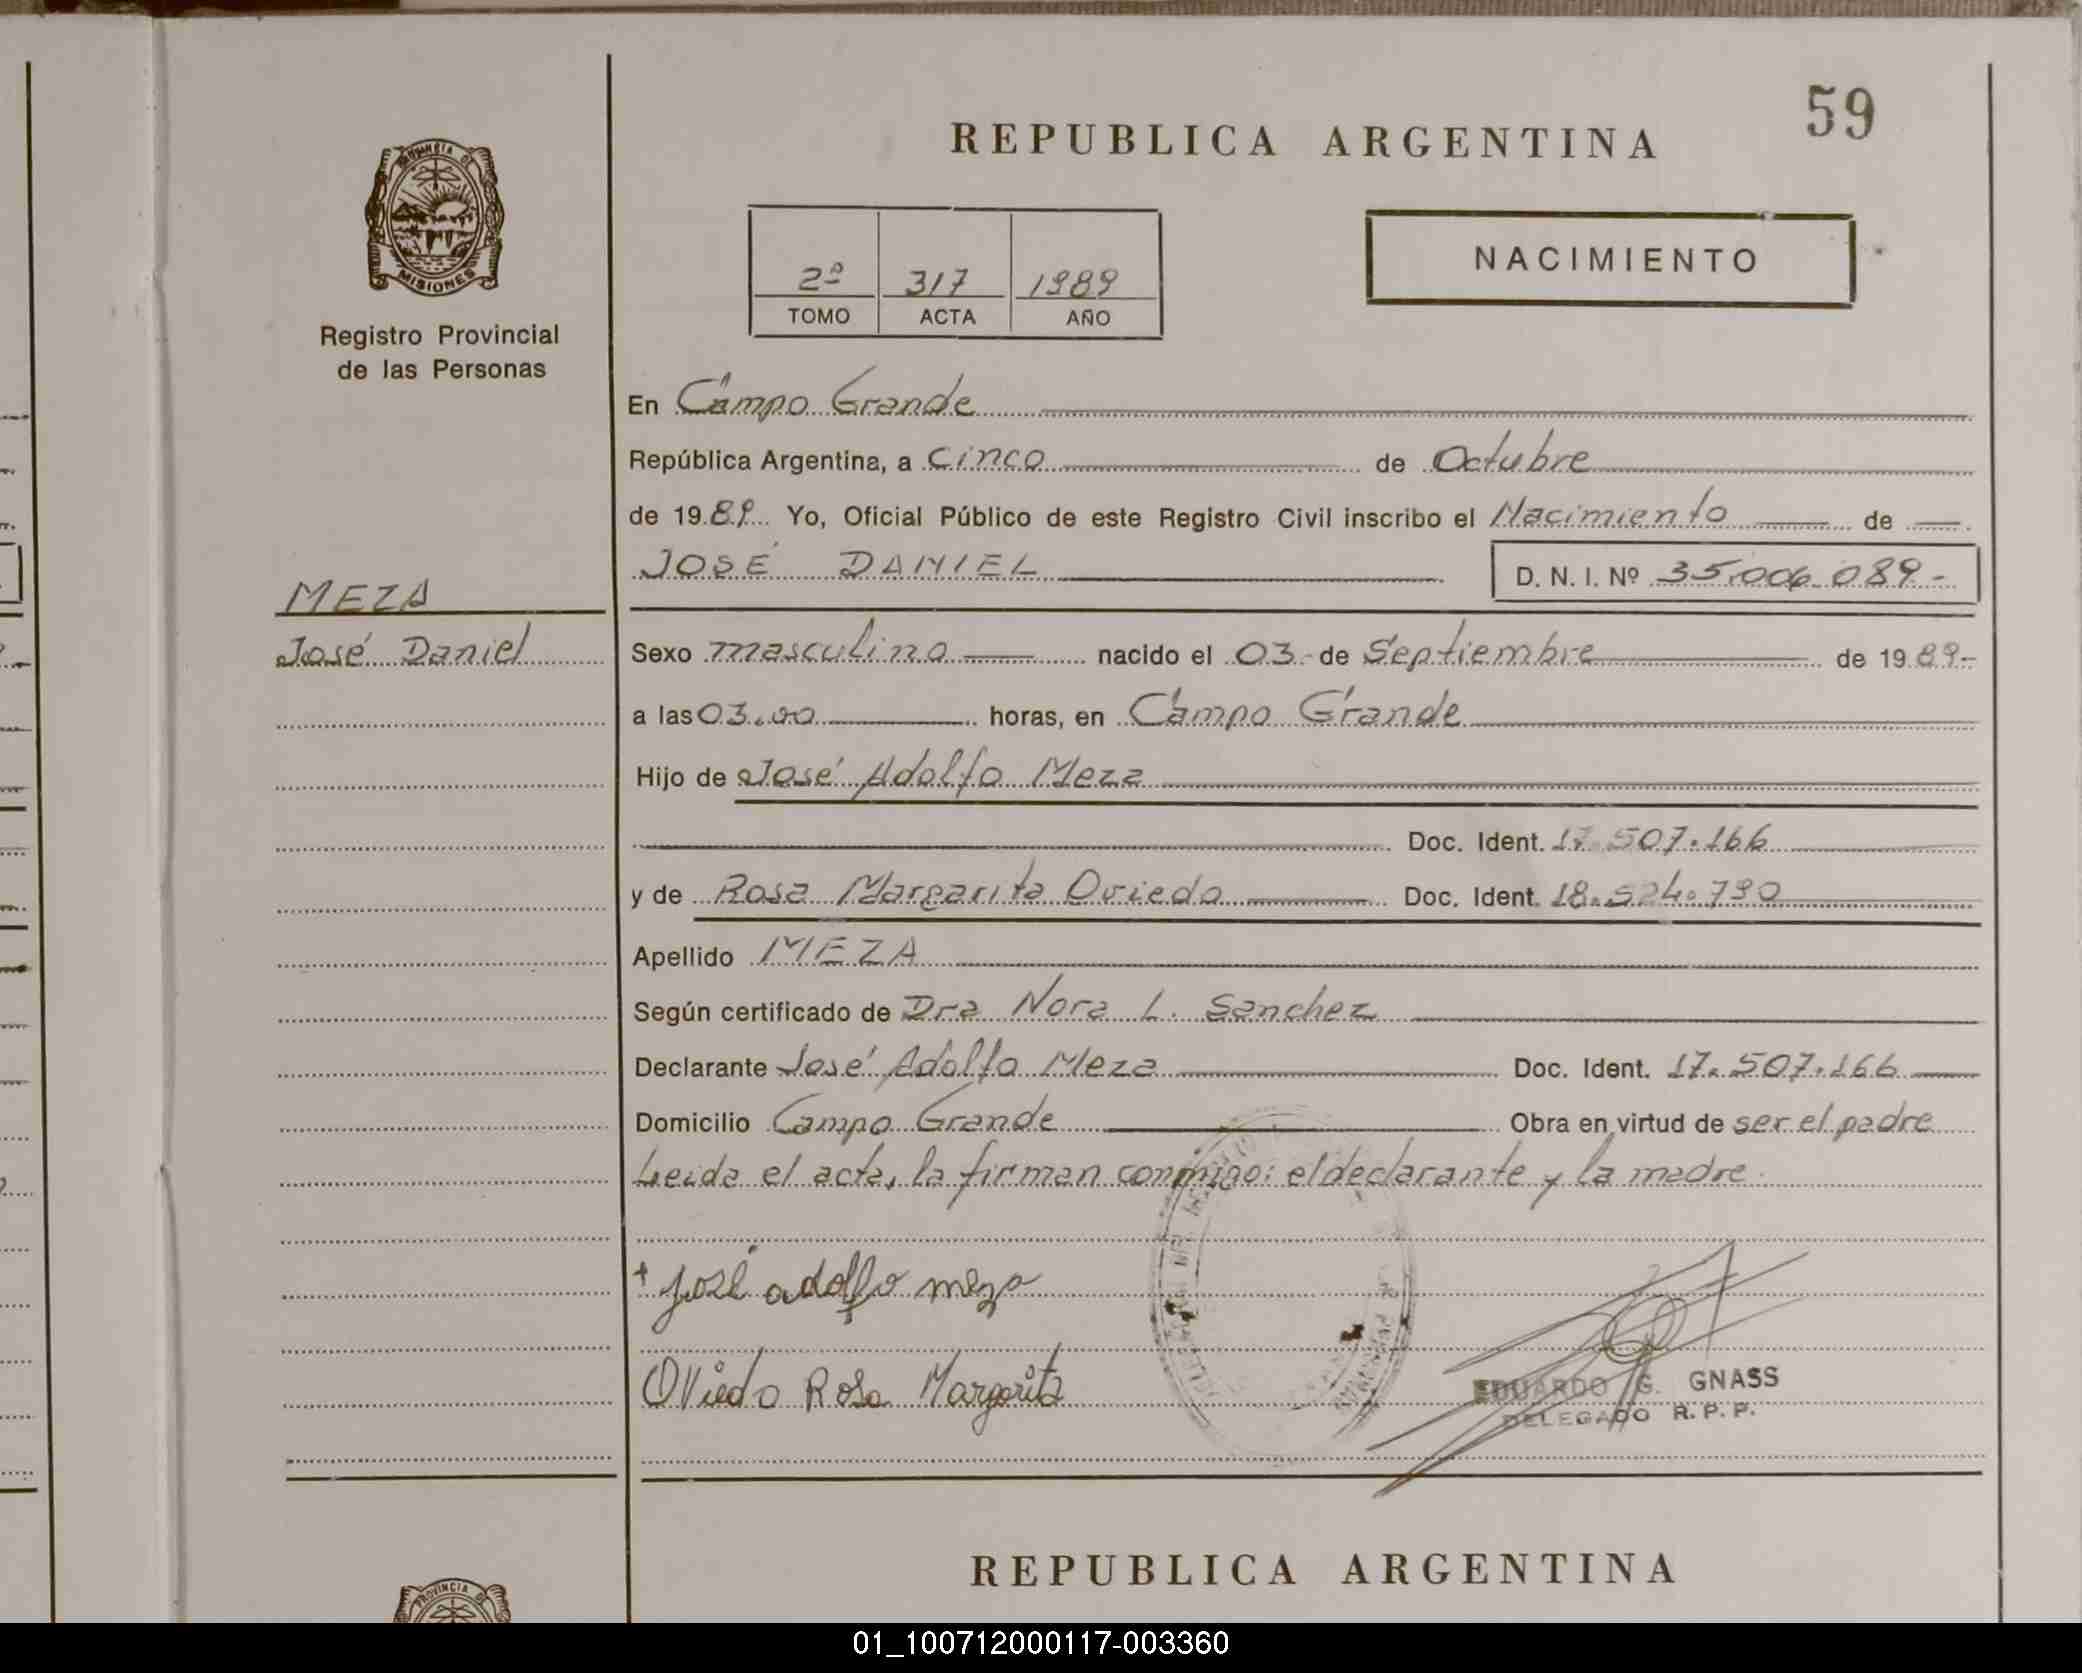 59
REPUBLICA ARGENTINA
PROVINCIA DE
MISIONES
Registro Provincial
de las Personas
2º 317 1989
TOMO ACTA AÑO
NACIMIENTO
En Campo Grande
República Argentina, a cinco de Octubre
de 1989 Yo, Oficial Público de este Registro Civil inscribo el Nacimiento de
JOSÉ DANIEL D. N. I. Nº 35.006.089.-
MEZA
José Daniel
Sexo masculino nacido el 03 de Septiembre de 1989-
a las 03.00 horas, en Campo Grande
Hijo de José Adolfo Meza
Doc. Ident. 17.507.166
y de Rosa Margarita Oviedo Doc. Ident. 18.524.790
Apellido MEZA
Según certificado de Dra Nora L. Sanchez
Declarante José Adolfo Meza Doc. Ident. 17.507.166
Domicilio Campo Grande Obra en virtud de ser el padre
Leida el acta, la firman conmigo: el declarante y la madre.
+ José adolfo meza
OViedo Rosa Margarita
EDUARDO G. GNASS
DELEGADO R. P. P.
REPUBLICA ARGENTINA
PROVINCIA DE
01_100712000117-003360